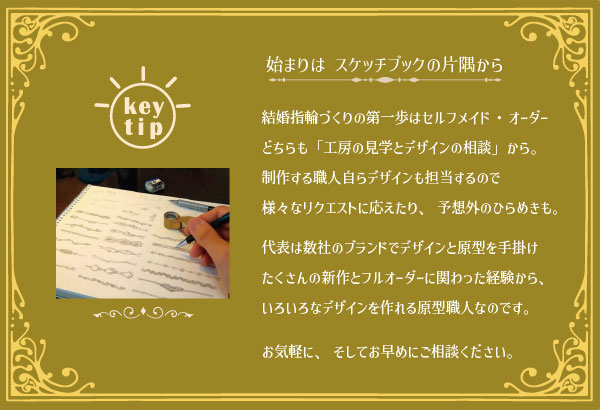 key
tip
始まりは スケッチブックの片隅から
結婚指輪づくりの第一歩はセルフメイド・オーダー
どちらも「工房の見学とデザインの相談」から。
制作する職人自らデザインも担当するので
様々なリクエストに応えたり、予想外のひらめきも。
代表は数社のブランドでデザインと原型を手掛け
たくさんの新作とフルオーダーに関わった経験から、
いろいろなデザインを作れる原型職人なのです。
お気軽に、そしてお早めにご相談ください。